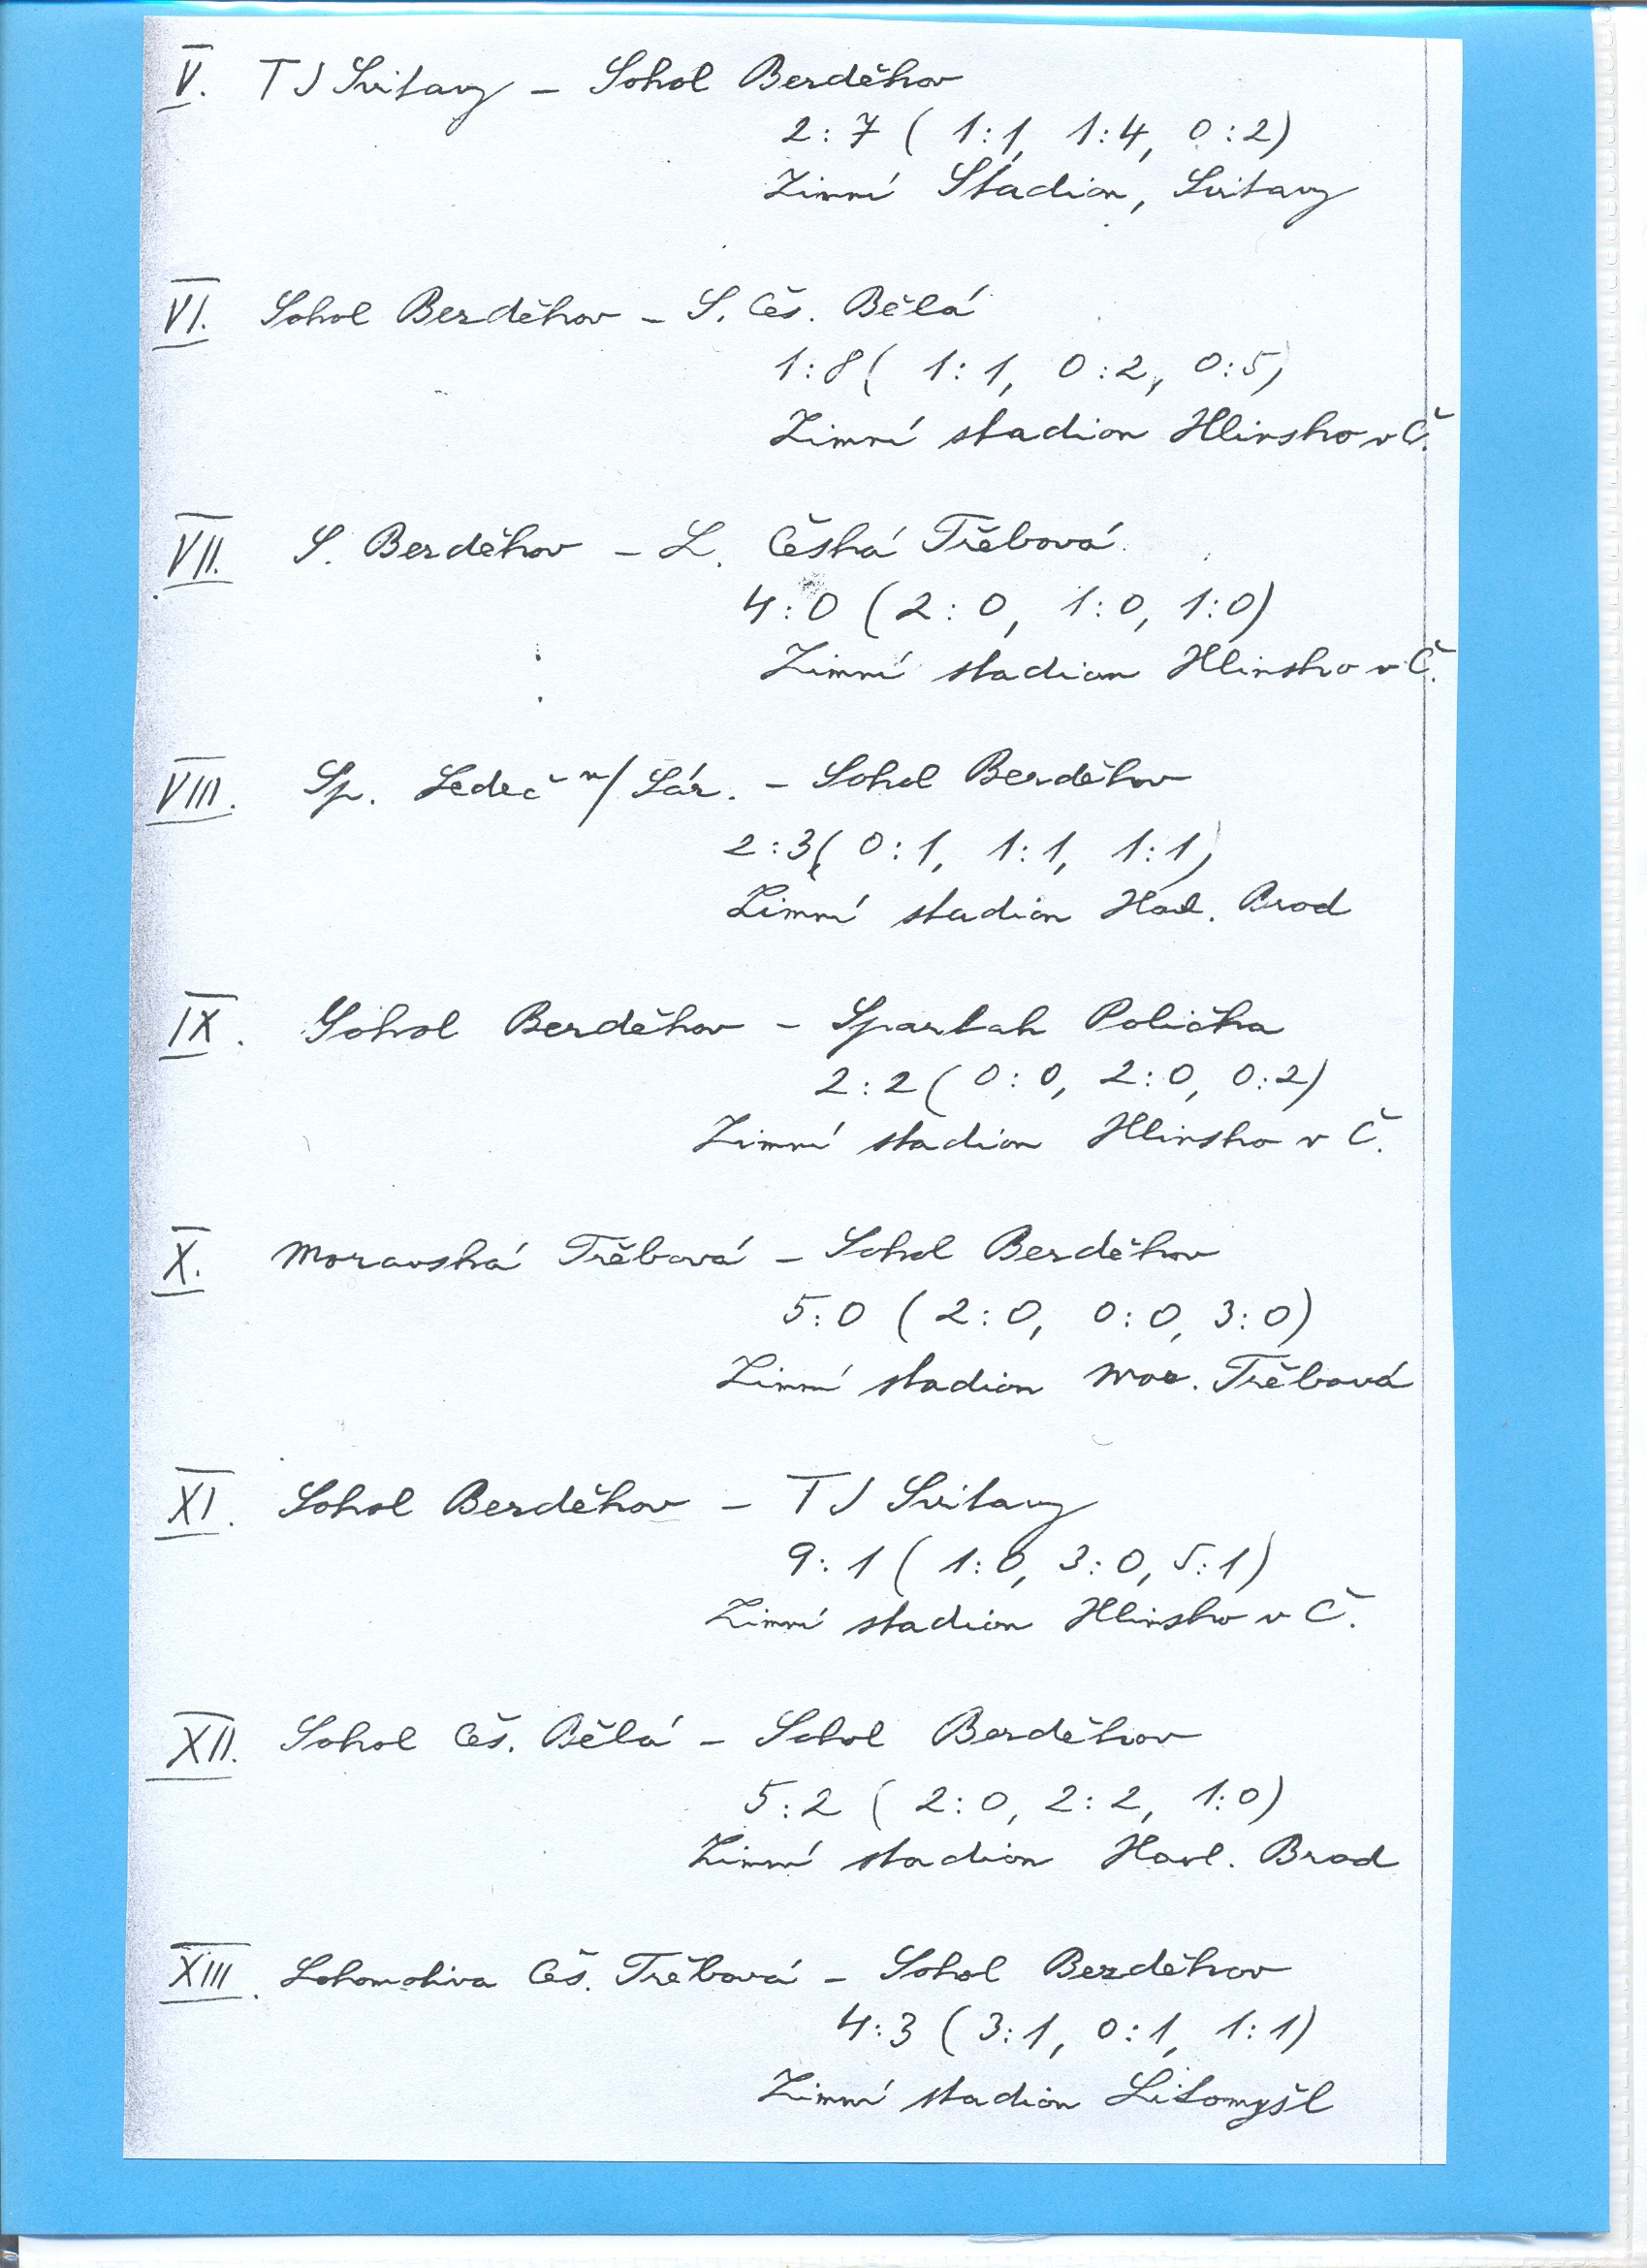 V. TJ Svitavy - Sokol Bezděkov
2:7 ( 1:1, 1:4, 0:2)
Zimní Stadion, Svitavy
VI. Sokol Bezděkov - S. Čes. Bělá
1:8 ( 1:1, 0:2, 0:5)
Zimní stadion Hlinsko v Č.
VII. S. Bezděkov - L. Česká Třebová
4:0 (2:0, 1:0, 1:0)
Zimní stadion Hlinsko v Č.
VIII. Sp. Ledeč n/Sáz. - Sokol Bezděkov
2:3( 0:1, 1:1, 1:1)
Zimní stadion Havl. Brod
IX. Sokol Bezděkov - Spartak Polička
2:2 ( 0:0, 2:0, 0:2)
Zimní stadion Hlinsko v Č.
X. Moravská Třebová - Sokol Bezděkov
5:0 ( 2:0, 0:0, 3:0)
Zimní stadion Mor. Třebová
XI. Sokol Bezděkov - TJ Svitavy
9:1 ( 1:0, 3:0, 5:1)
Zimní stadion Hlinsko v Č.
XII. Sokol Čes. Bělá - Sokol Bezděkov
5:2 ( 2:0, 2:2, 1:0)
Zimní stadion Havl. Brod
XIII. Lokomotiva Čes. Třebová - Sokol Bezděkov
4:3 ( 3:1, 0:1, 1:1)
Zimní stadion Litomyšl